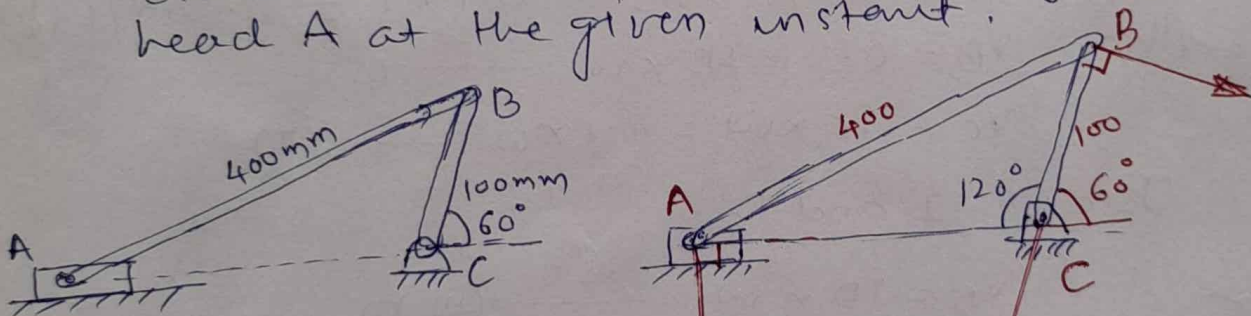 head A at the given instant.
B
400mm
100mm
60°
A
C
B
400
100
120°
60°
A
C